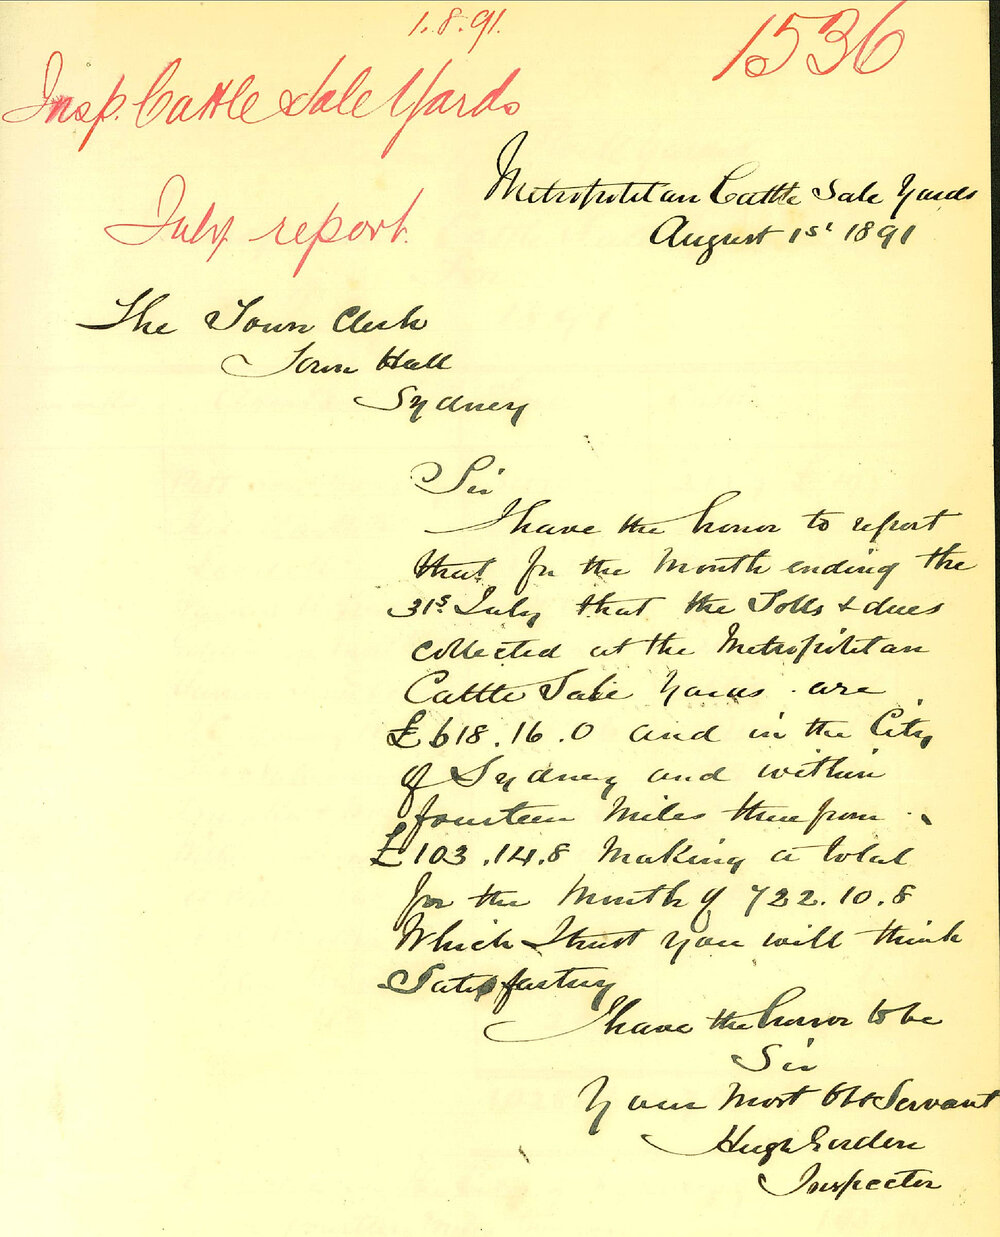 1.8.91.
1536
Insp. Cattle Sale Yards
Metropolitan Cattle Sale Yards
July report.
August 1st 1891
The Town Clerk
Town Hall
Sydney
Sir
I have the honor to report
that for the Month ending the
31s July that the Tolls & dues
collected at the Metropolitan
Cattle Sale Yards are
£618.16.0 and in the City
of Sydney and within
fourteen Miles therefrom
£103.14.8 Making a total
for the Month of 722.10.8
Which I trust you will think
Satisfactory
I have the honor to be
Sir
Your Most Obt Servant
Hugh Gordon
Inspector